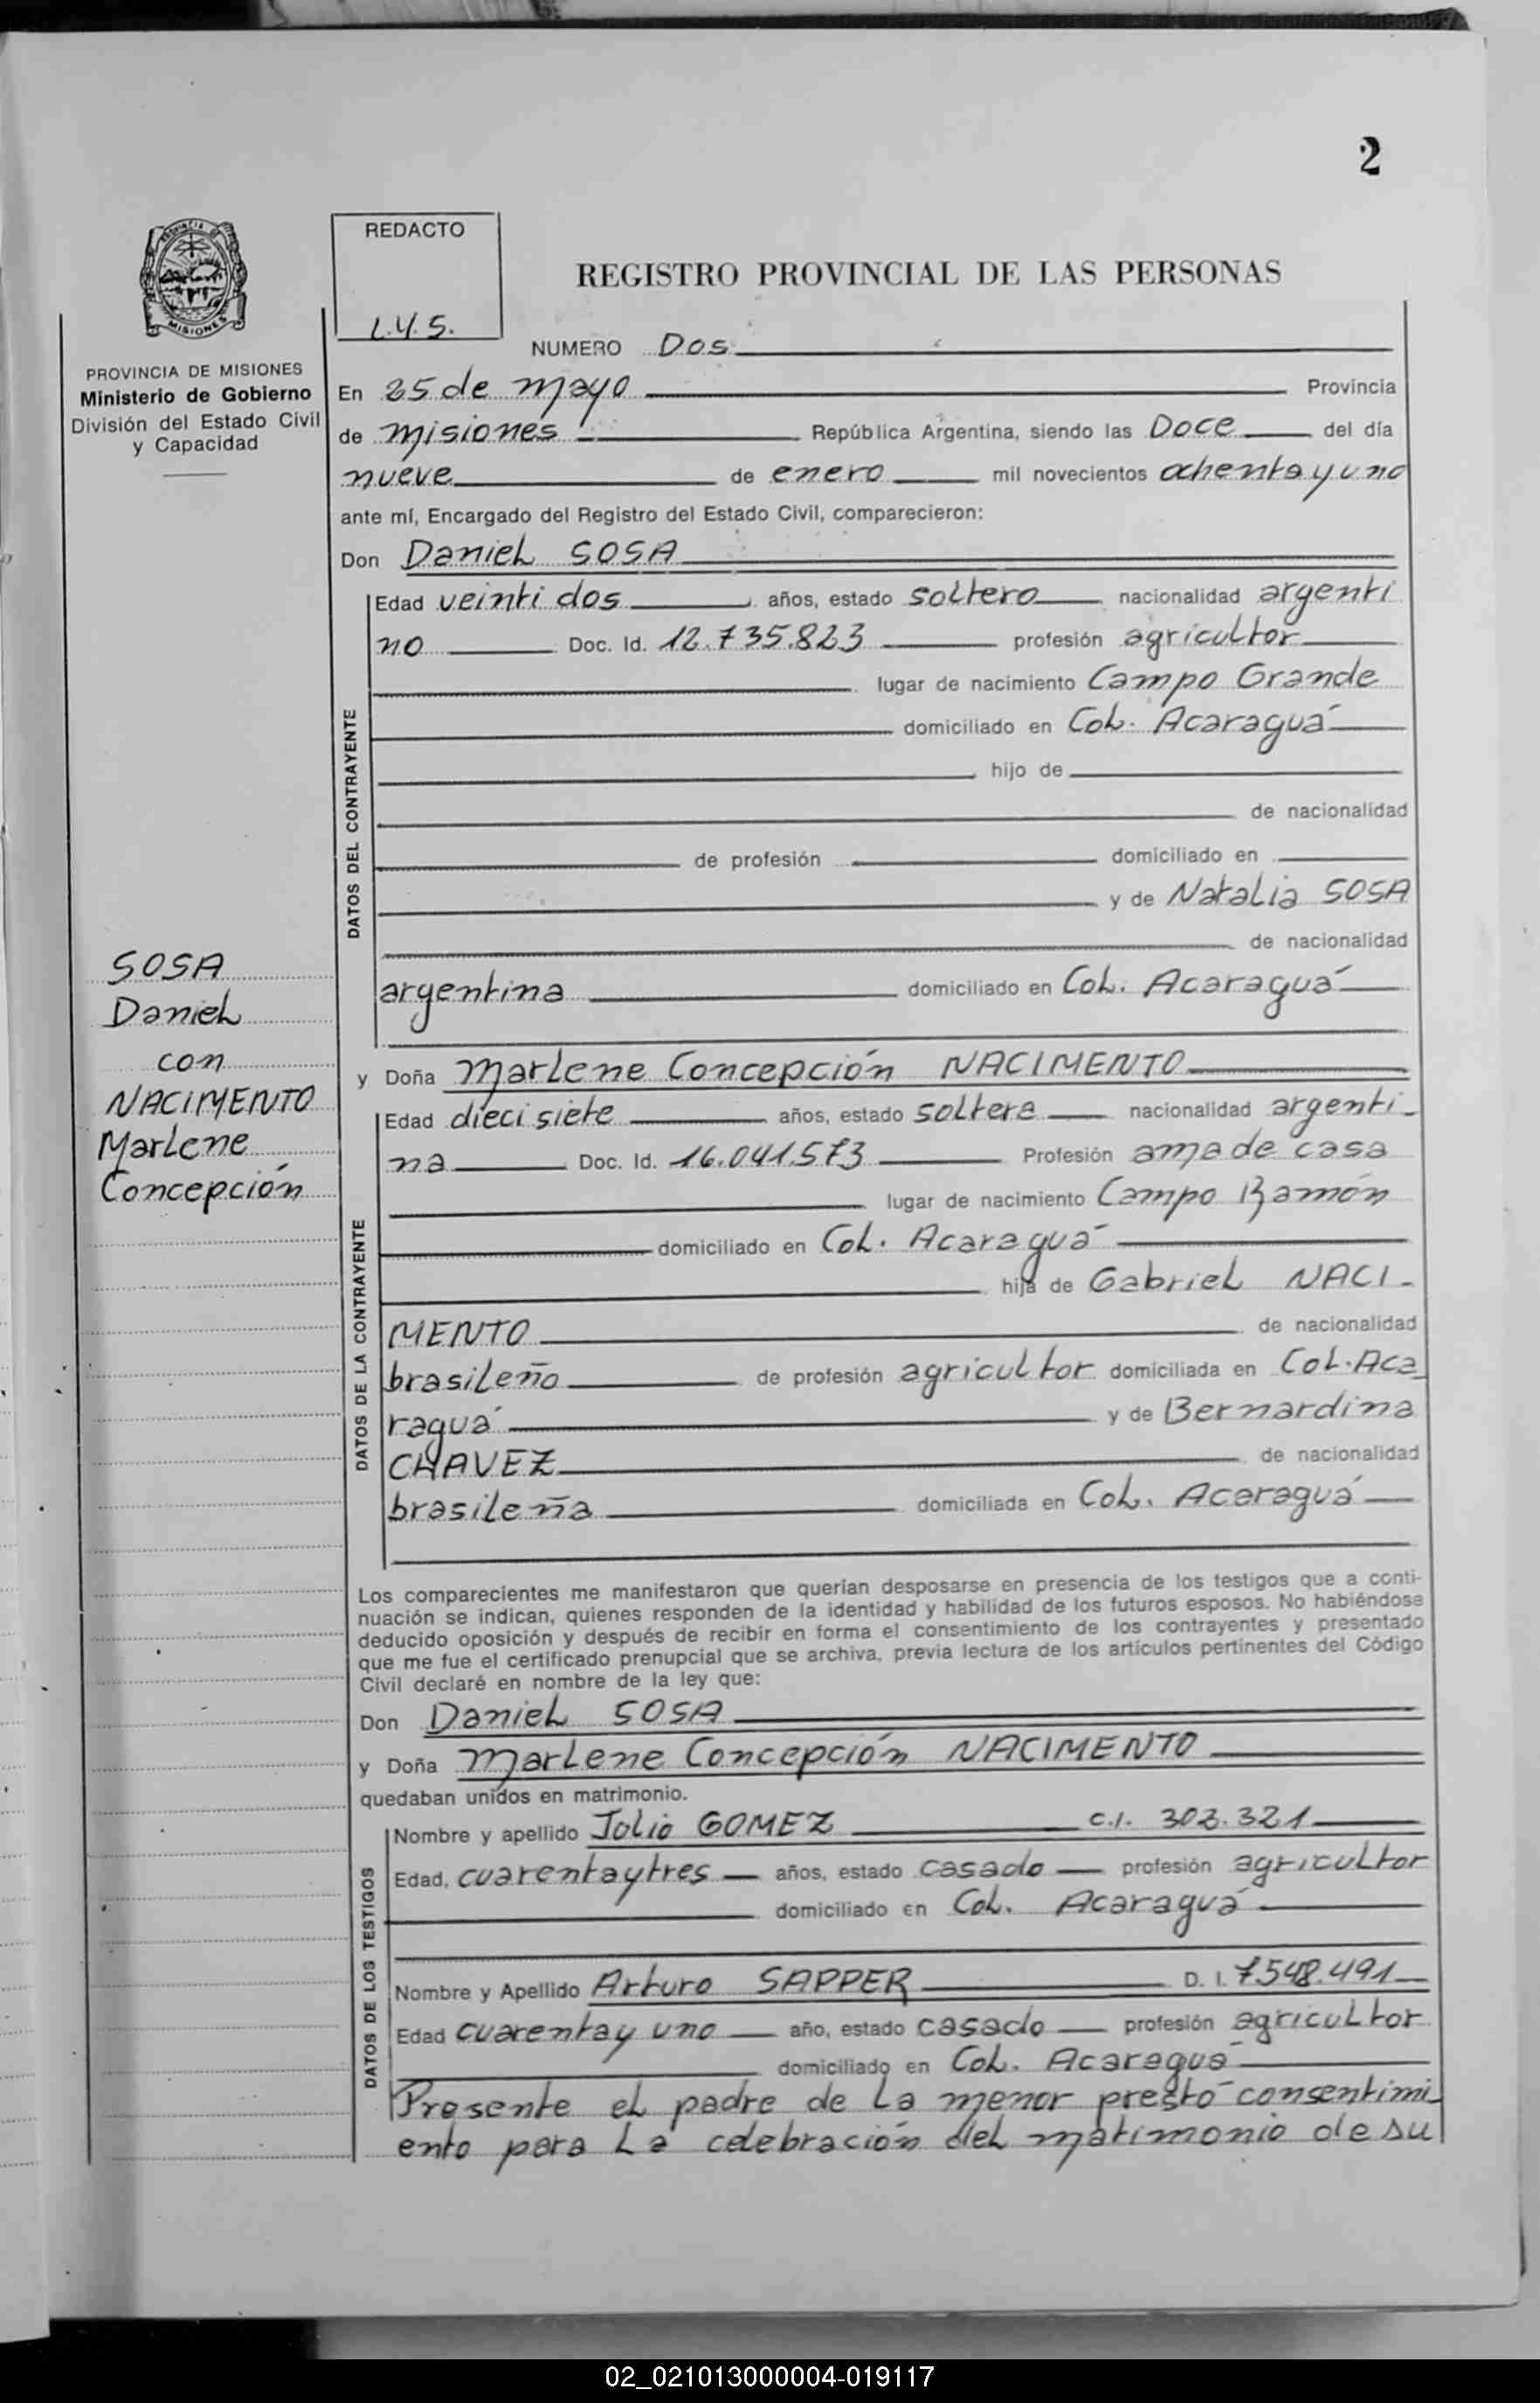 2
REDACTO
L.Y.S.
PROVINCIA DE MISIONES
Ministerio de Gobierno
División del Estado Civil
y Capacidad
REGISTRO PROVINCIAL DE LAS PERSONAS
NUMERO Dos
En 25 de mayo Provincia
de misiones República Argentina, siendo las Doce del día
nueve de enero mil novecientos ochenta y uno
ante mí, Encargado del Registro del Estado Civil, comparecieron:
Don Daniel SOSA
DATOS DEL CONTRAYENTE
Edad veinti dos años, estado soltero nacionalidad argenti
no Doc. Id. 12.735.823 profesión agricultor
lugar de nacimiento Campo Grande
domiciliado en Col. Acaraguá
hijo de
de nacionalidad
de profesión domiciliado en
y de Natalia SOSA
de nacionalidad
argentina domiciliado en Col. Acaraguá
SOSA
Daniel
con
NACIMENTO
Marlene
Concepción
y Doña Marlene Concepción NACIMENTO
DATOS DE LA CONTRAYENTE
Edad dieci siete años, estado soltera nacionalidad argenti-
na Doc. Id. 16.041.573 Profesión ama de casa
lugar de nacimiento Campo Ramón
domiciliado en Col. Acaraguá
hija de Gabriel NACI-
MENTO de nacionalidad
brasileño de profesión agricultor domiciliada en Col. Aca
raguá y de Bernardina
CHAVEZ de nacionalidad
brasileña domiciliada en Col. Acaraguá
Los comparecientes me manifestaron que querían desposarse en presencia de los testigos que a conti-
nuación se indican, quienes responden de la identidad y habilidad de los futuros esposos. No habiéndose
deducido oposición y después de recibir en forma el consentimiento de los contrayentes y presentado
que me fue el certificado prenupcial que se archiva, previa lectura de los artículos pertinentes del Código
Civil declaré en nombre de la ley que:
Don Daniel SOSA
y Doña Marlene Concepción NACIMENTO
quedaban unidos en matrimonio.
DATOS DE LOS TESTIGOS
Nombre y apellido Julio GOMEZ C.I. 303.321
Edad, cuarenta y tres años, estado casado profesión agricultor
domiciliado en Col. Acaraguá
Nombre y Apellido Arturo SAPPER D. I. 7.548.491
Edad cuarenta y uno año, estado casado profesión agricultor
domiciliado en Col. Acaraguá
Presente el padre de la menor prestó consentimi-
ento para la celebración del matimonio de su
02_021013000004-019117